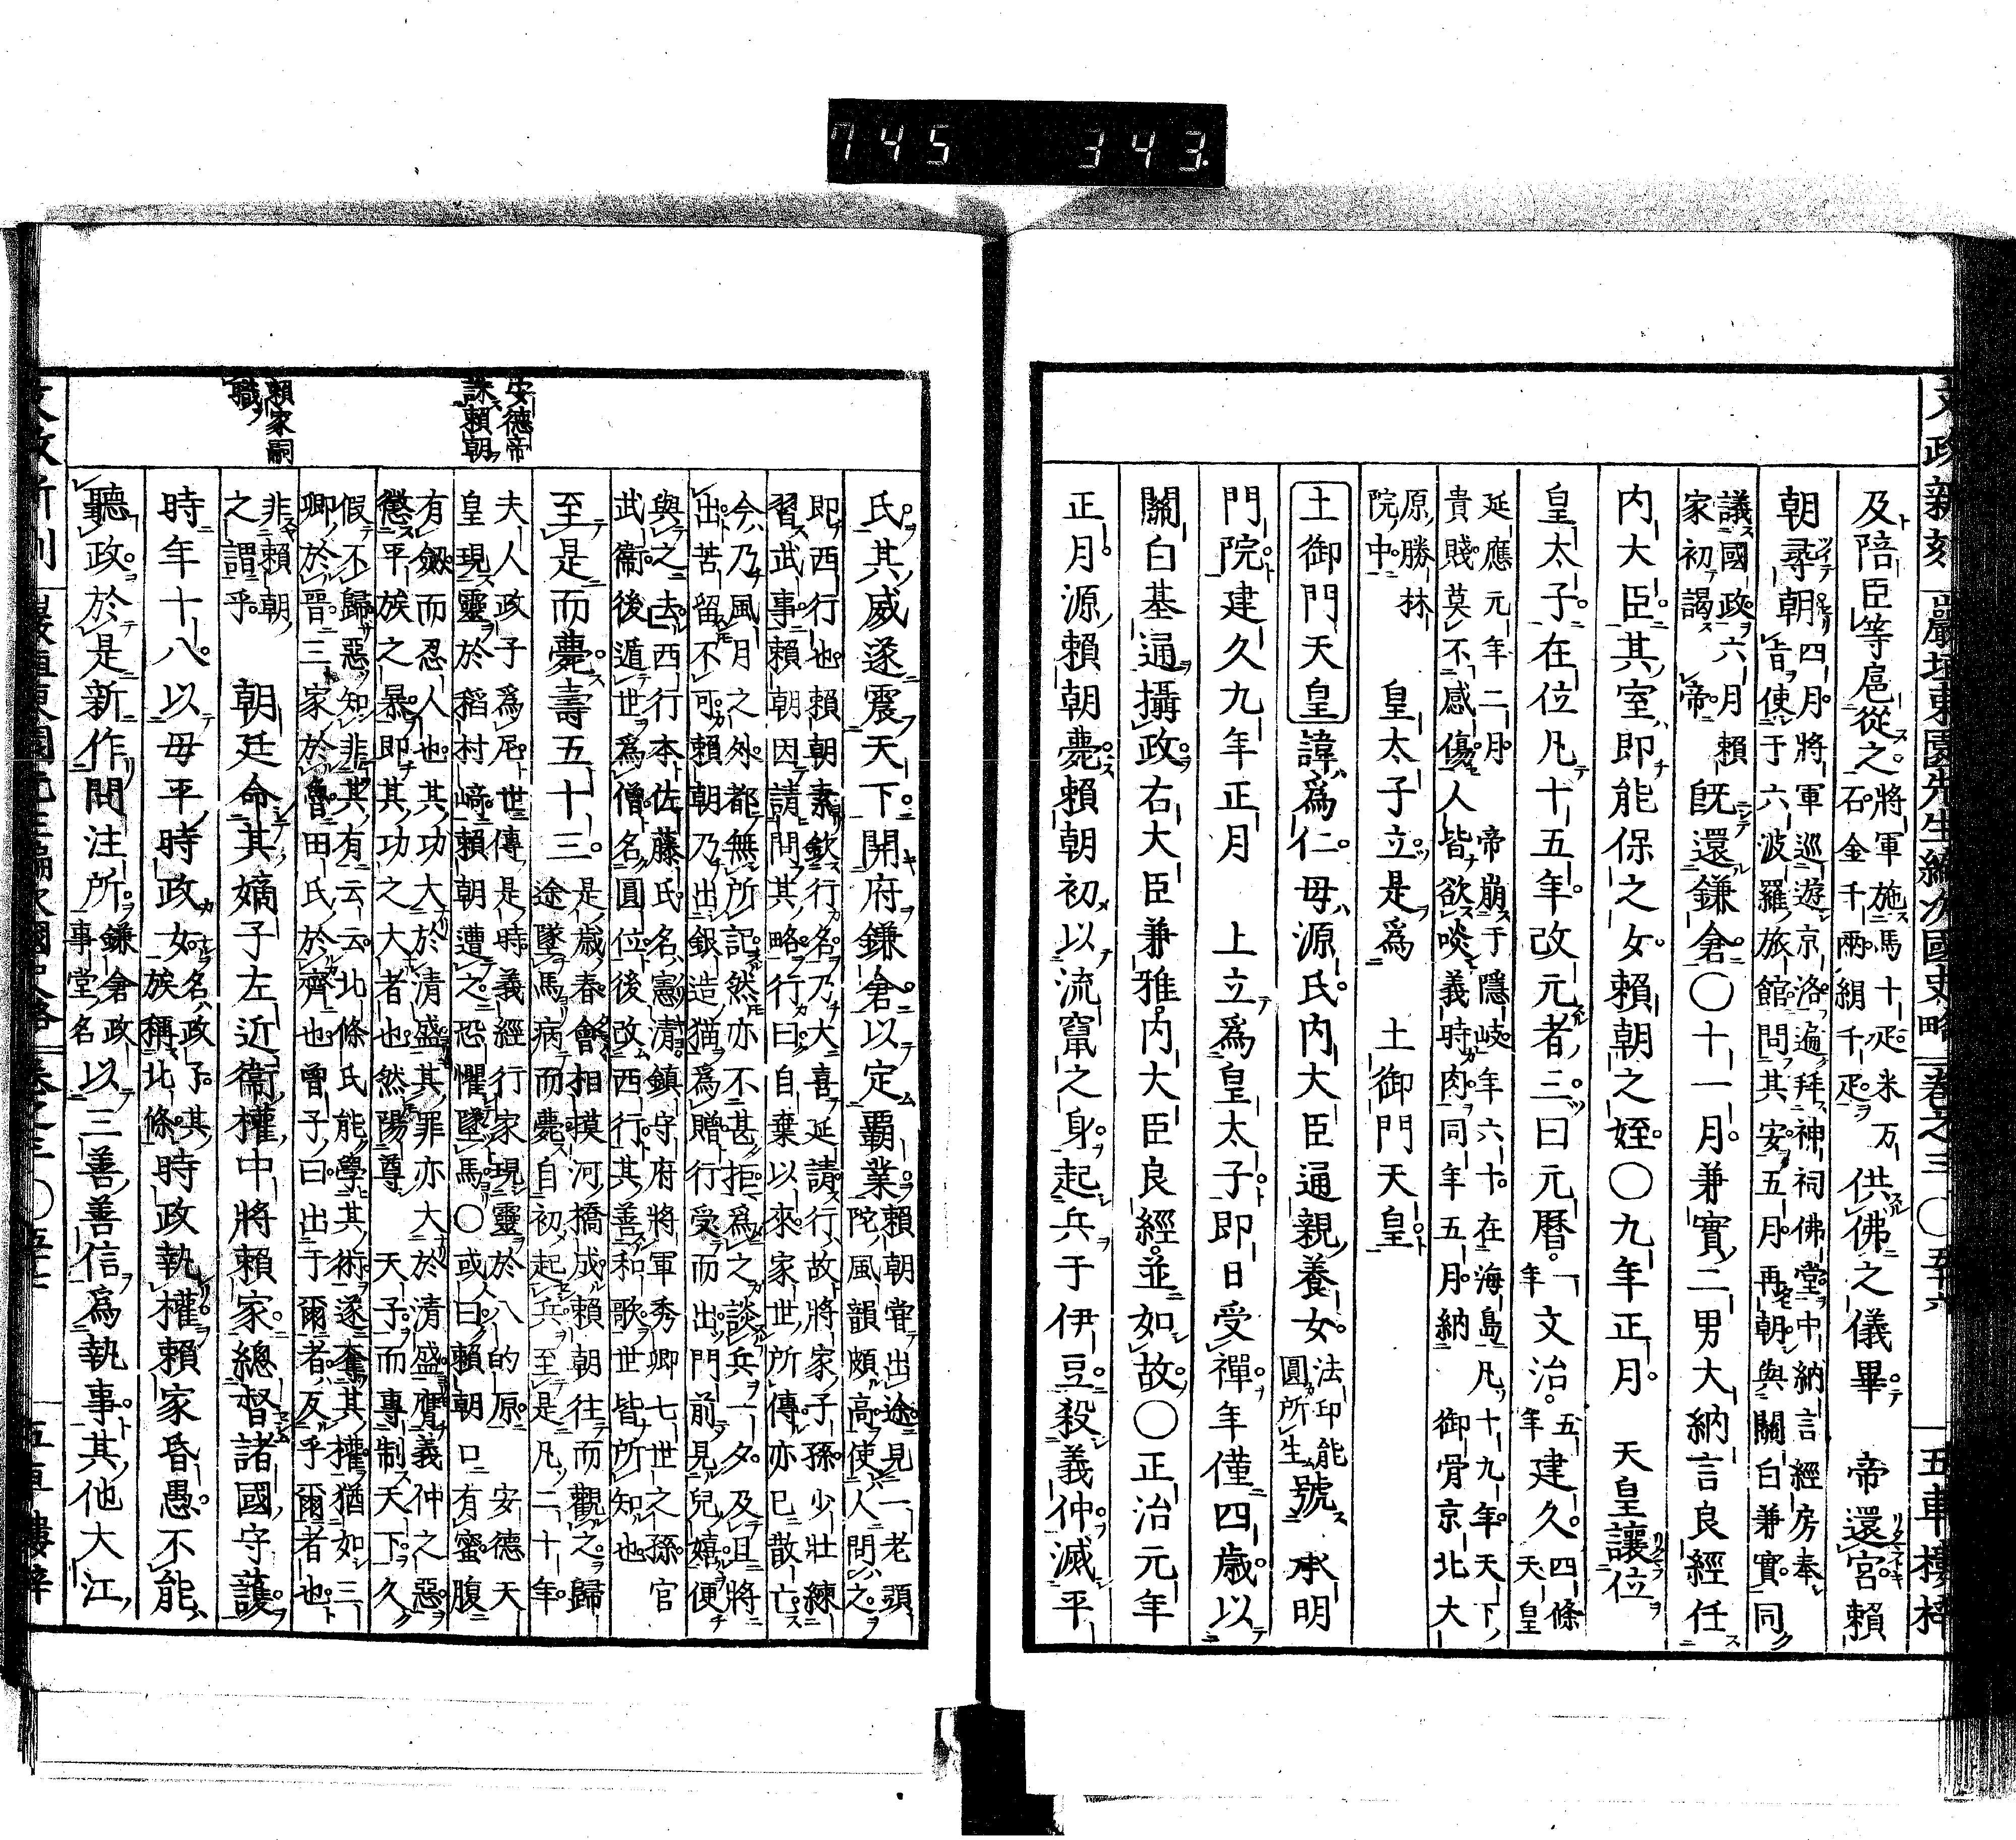 745 343.
文政新刻 巖垣東園先生編次國史略 卷之三 〇五十六 五車樓梓
及陪臣等扈從之。將軍施馬十疋米万
石金千兩絹千疋。供佛之儀畢 帝還宮賴
朝尋朝四月將軍巡遊京洛遍拜神祠佛堂中納言經房奉
旨使于六波羅旅館問其安五月再朝與關白兼實同
議國政六月賴
家初謁 帝既還鎌倉〇十一月兼實二男大納言良經任
内大臣其室即能保之女賴朝之姪〇九年正月 天皇讓位
皇太子在位凡十五年改元者三曰元曆一年文治五年建久四條天皇
延應元年二月 帝崩于隱岐年六十在海島凡十九年天下
貴賤莫不感傷人皆欲啖義時肉同年五月納 御骨京北大
原勝林
院中 皇太子立是爲 土御門天皇
土御門天皇諱爲仁母源氏内大臣通親養女法印能
圓所生號承明
門院建久九年正月 上立爲皇太子即日受禪年僅四歲以
關白基通攝政右大臣兼雅内大臣良經並如故〇正治元年
正月源賴朝薨賴朝初以流竄之身起兵于伊豆殺義仲滅平
氏其威遂震天下開府鎌倉以定覇業賴朝嘗出途見一老頭
陀風韻頗高使人問之
即西行也賴朝素欽行名乃大喜延請行故將家子孫少壯練
習武事賴朝因請問其略行曰自棄以來家世所傳亦已散亡
今乃風月之外都無所記然亦不甚拒爲之談兵一夕及且將
出苦留不可賴朝乃出銀造猫爲贈行受而出門前見兒嬉便
與之去西行本佐藤氏名憲清鎮守府將軍秀卿七世之孫官
武衞後遁世爲僧名圓位後改西行其善和歌世皆所知也
至是而薨壽五十三是歲春會相摸河橋成賴朝往而觀之歸
途墜馬病而薨自初起兵至是凡二十年
夫人政子爲尼世傳是時義經行家現靈於八的原 安德天
皇現靈於稻村崎賴朝遭之恐懼墜馬〇或曰賴朝口有蜜腹
有劔而忍人也其功大於清盛其罪亦大於清盛膺義仲之惡
懲平族之暴即其功之大者也然陽尊 天子而專制天下久
假不歸惡知非其有云云北條氏能學其術遂奪其權猶如三
卿於晉三家於魯田氏於齊也曾子曰出于爾者反乎爾者也
非賴朝
之謂乎 朝廷命其嫡子左近衞權中將賴家總督諸國守護
時年十八以母平時政女名政子其
族稱北條時政執權賴家昏愚不能
聽政於是新作問注所鎌倉政
事堂名以三善善信爲執事其他大江
安德帝
誅賴朝
賴家嗣
職
五十七